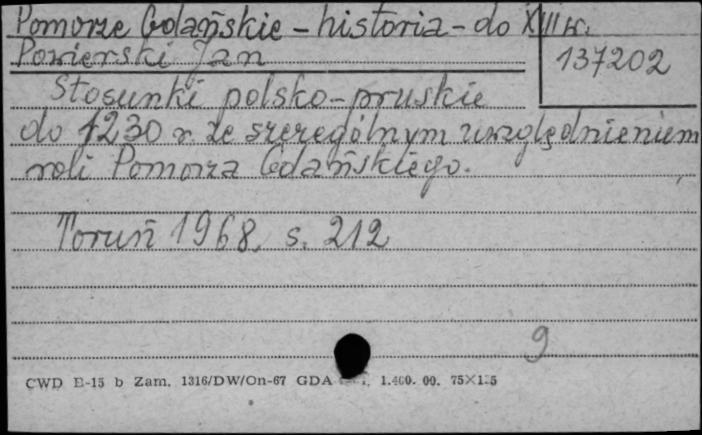 Pomorze Gdańskie - historia - do XIII w.
Powierski Jan
137202
Stosunki polsko-pruskie
do 1230 r. ze szczególnym uwzględnieniem
roli Pomorza Gdańskiego.
Toruń 1968, s. 212
9
CWD E-15 b Zam. 1316/DW/On-67 GDA 1.400. 00. 75×125